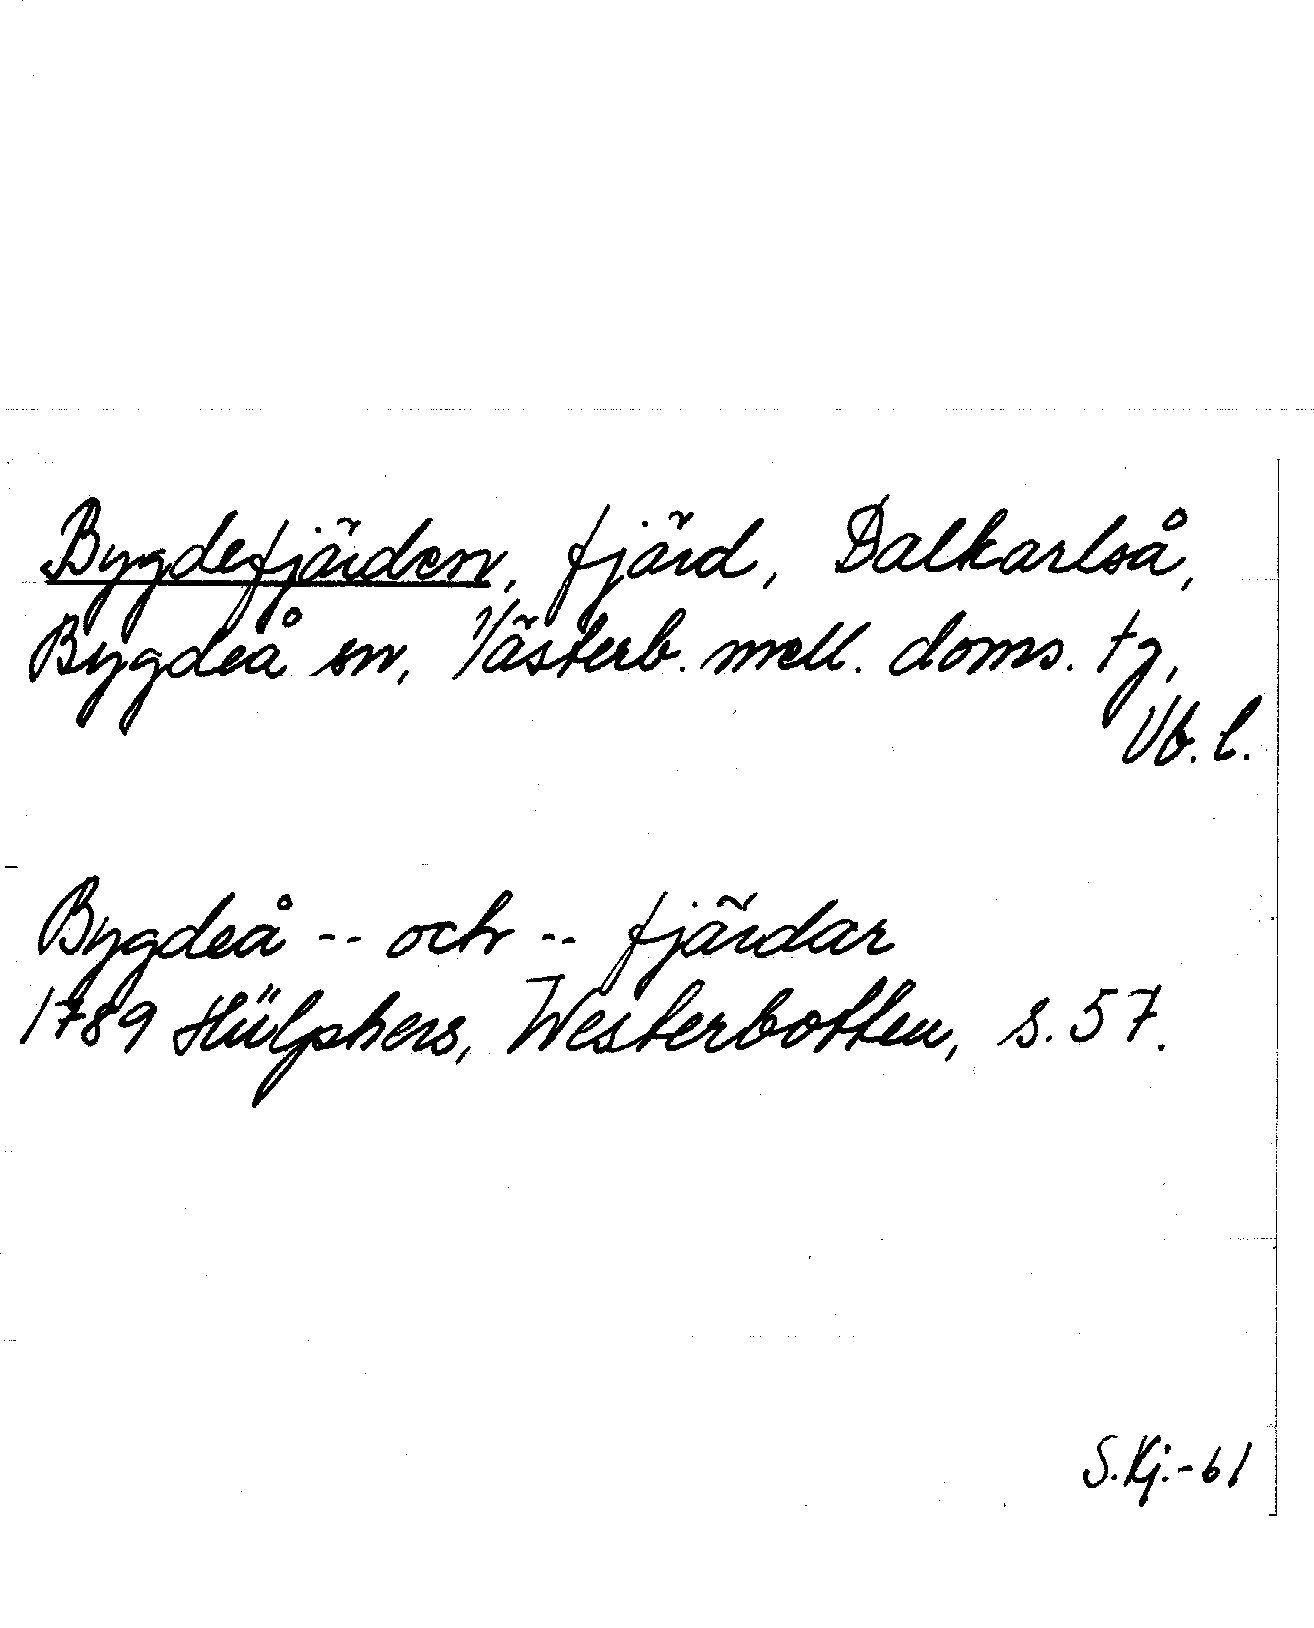 Bygdefjärden, fjärd, Dalkarlså,
Bygdeå sn, Västerb. mell. doms. tg,
Vb. l.
Bygdeå -- och -- fjärdar
1789 Hülphers, Westerbotten, s. 57.
S. Kj. - 61